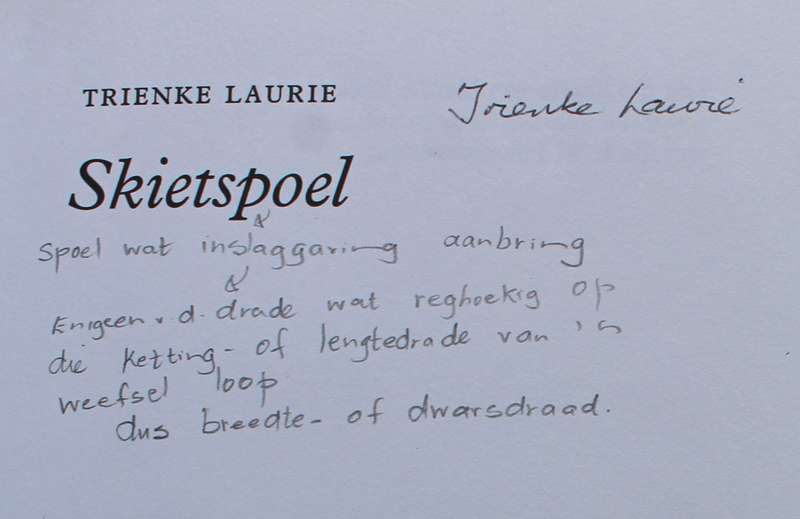 TRIENKE LAURIE
Trienke Laurie
Skietspoel
spoel wat inslaggaring aanbring
Enigeen v. d. drade wat reghoekig op
die ketting- of lengtedrade van 'n
weefsel loop
dus breedte- of dwarsdraad.